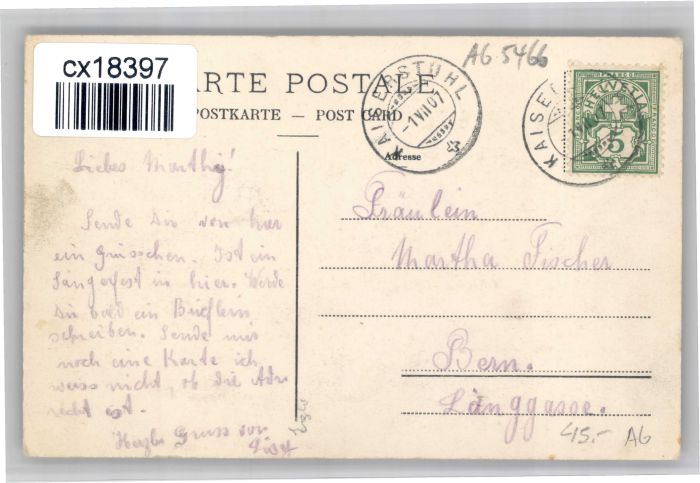 cx18397
AG 5466
ARTE POSTALE
POSTKARTE - POST CARD
KAISERSTUHL
-1.VII.07
KAISE
FRANCO
HELVETIA
5
Adresse
Liebes Marthy!
Sende dir von hier
ein Grüsschen. Ist ein
Sängerfest in hier. Werde
dir bald ein
schreiben. Sende mir
noch eine Karte ich
weiss nicht, ob die Adr.
recht ist.
Herzl. Gruss von
Fräulein
Martha Fischer
Bern.
Länggasse.
45.- AG